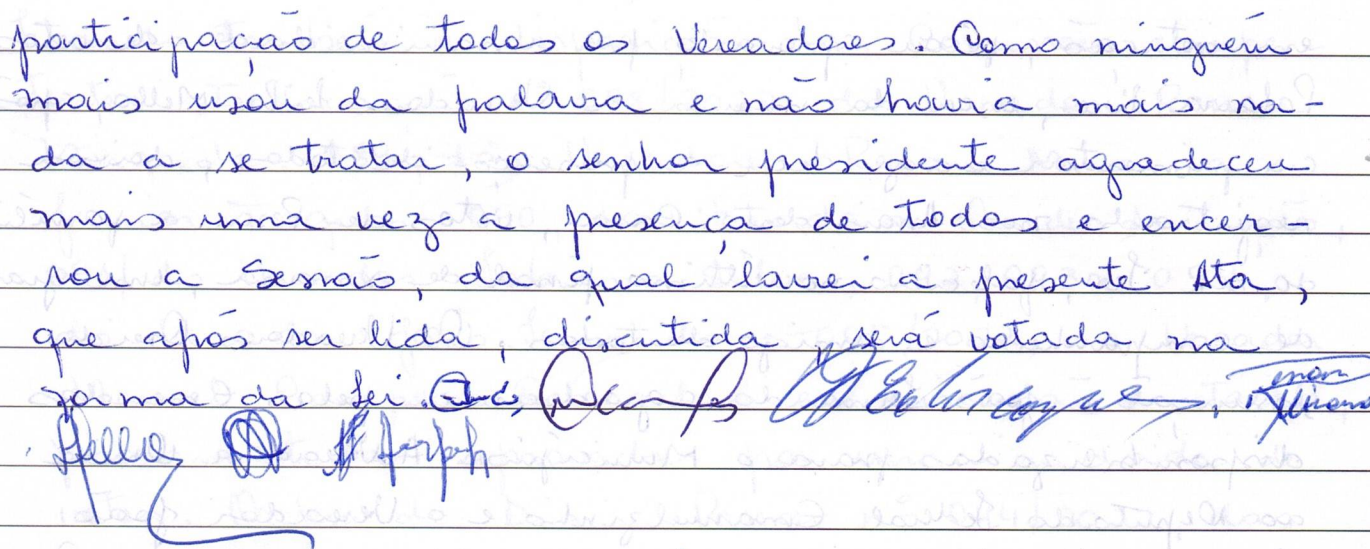 participação de todos os Vereadores. Como ninguém
mais usou da palavra e não havia mais na-
da a se tratar, o senhor presidente agradeceu
mais uma vez a presença de todos e encer-
rou a Sessão, da qual lavrei a presente Ata,
que após ser lida, discutida, será votada na
forma da Lei.